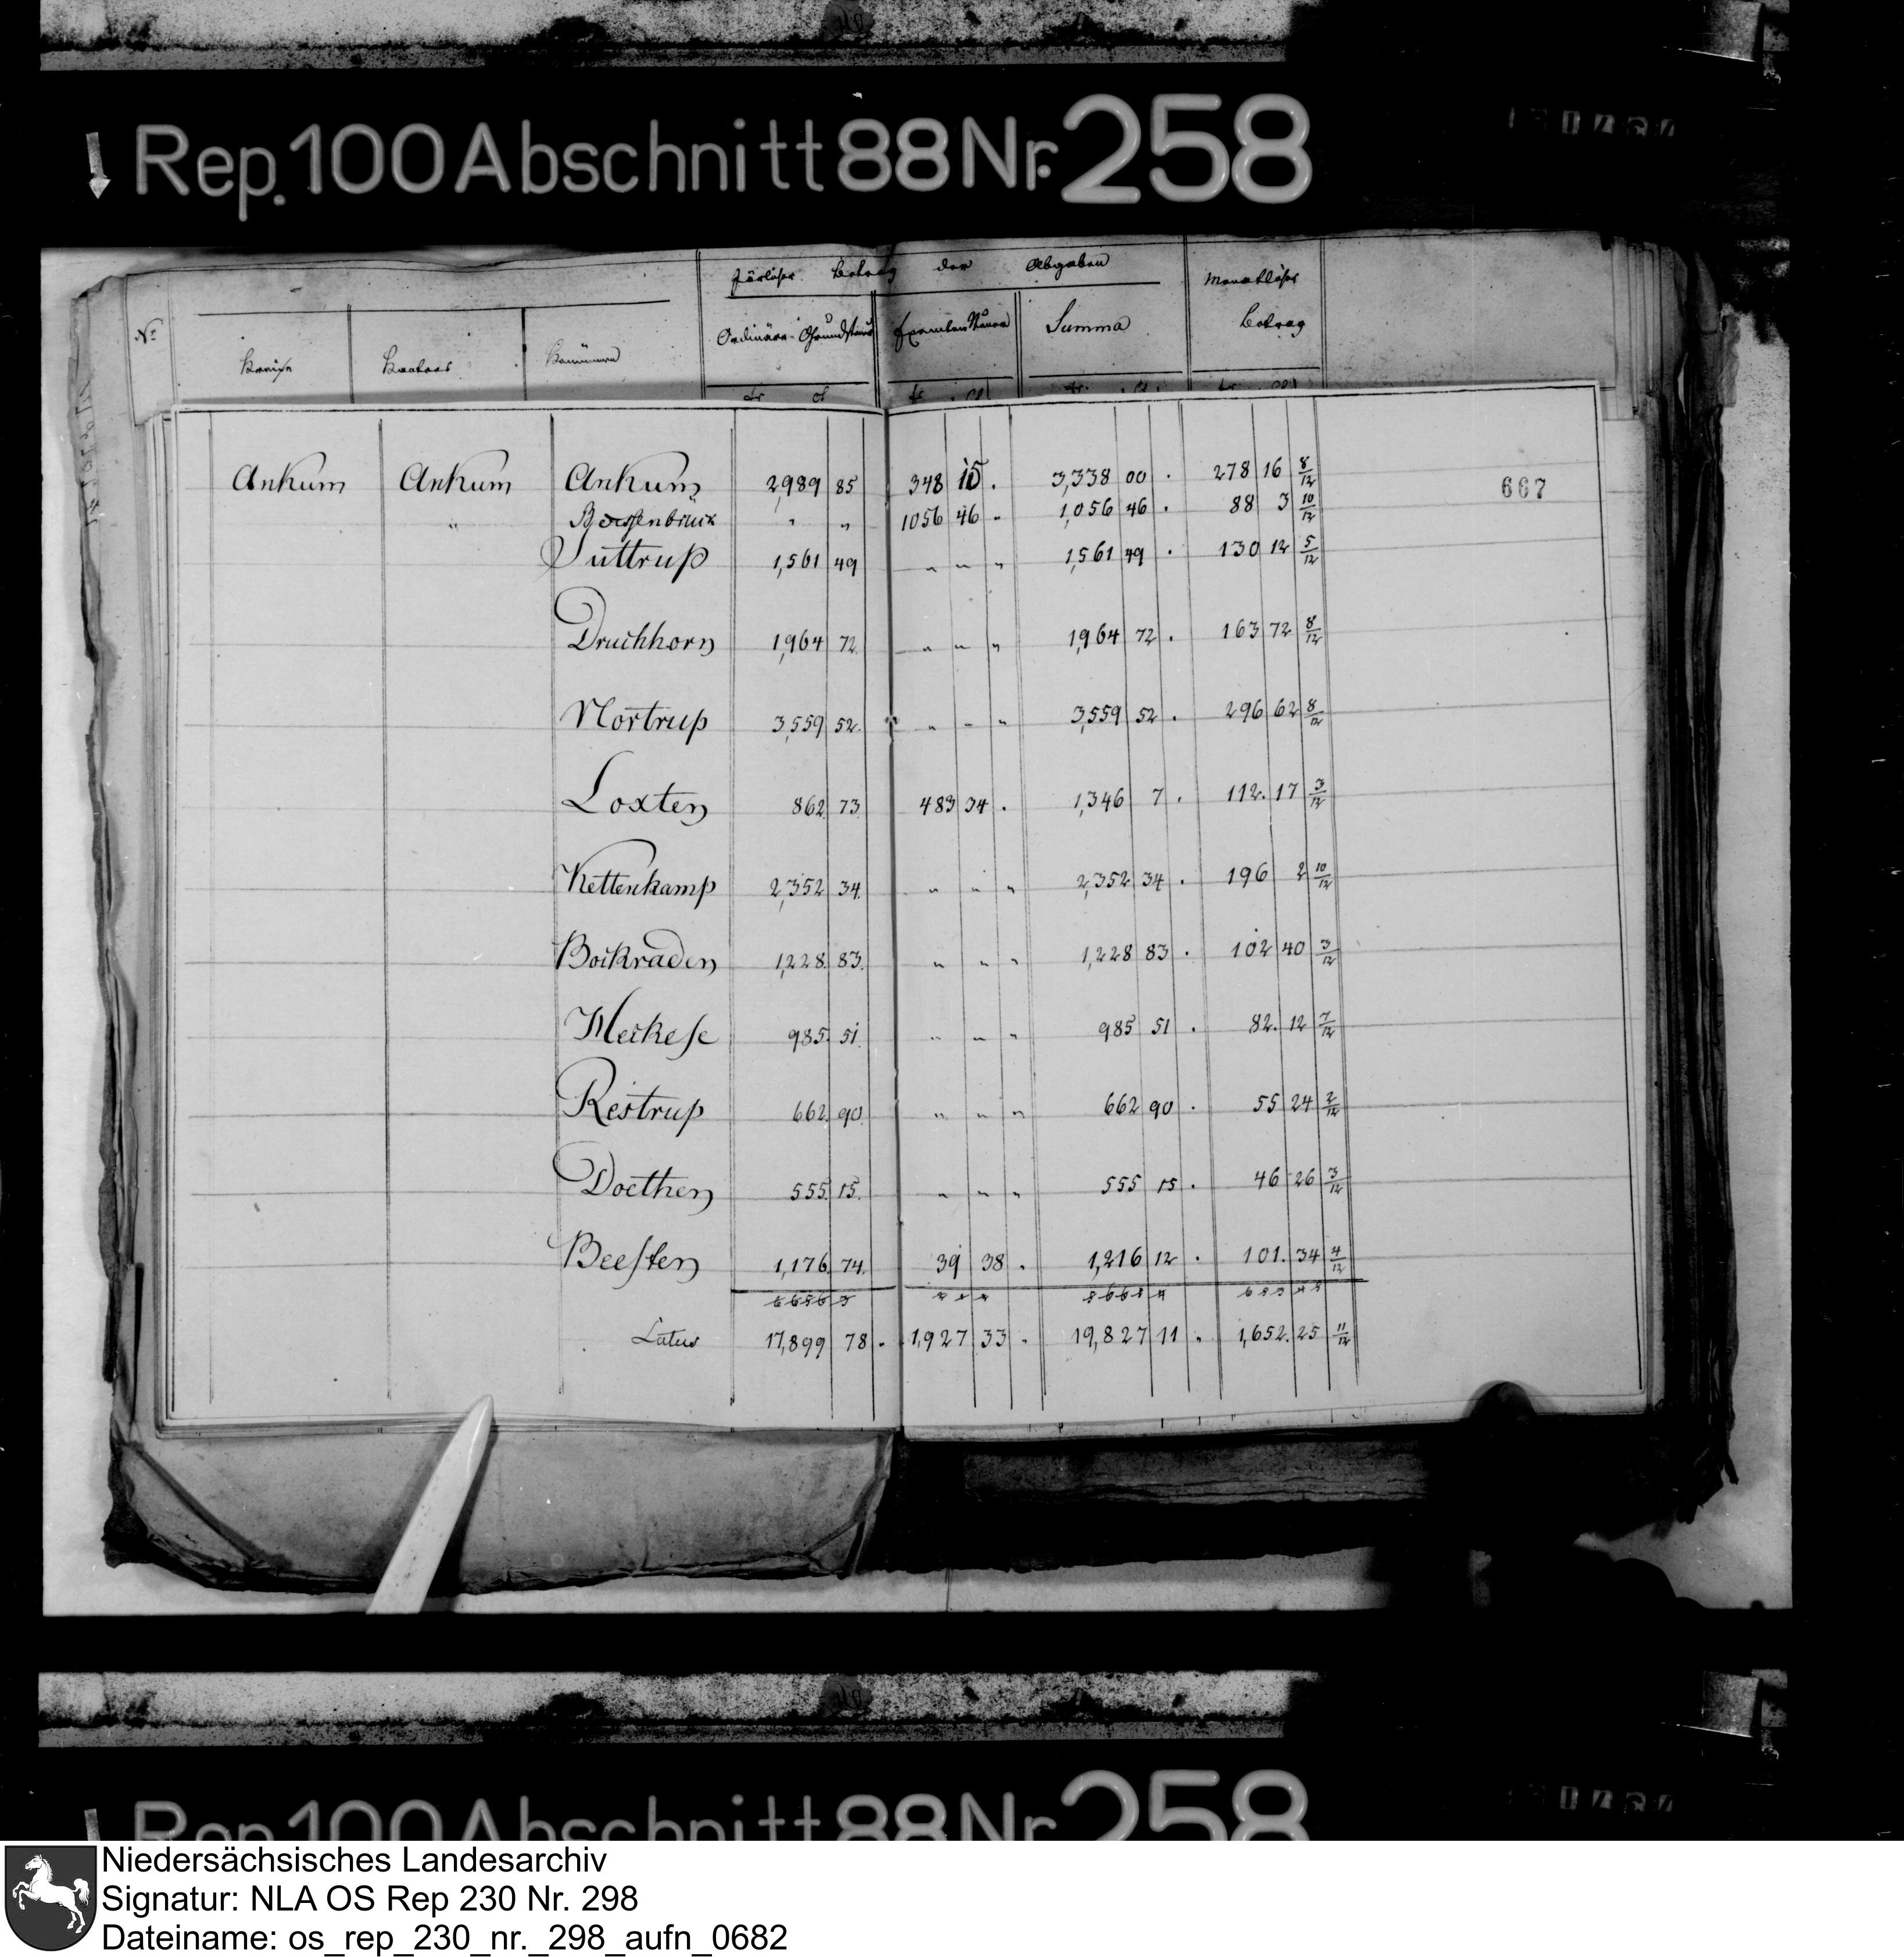 Rep. 100 Abschnitt 88 Nr. 258
Järlicher Betrag der Abgaben Monatlicher
No Kreise Kantons Kommünen Ordinäre Grundsteuer Exemten Steuer Summa Betrag
fr ct fr ct fr ct fr ct
Ankum Ankum Ankum 2,989 85 348 15 . 3,338 00 . 278 16 8/12
667
" Bersenbrück " " 1056 46 . 1,056 46 . 88 3 10/12
Suttrup 1,561 49 " " " 1,561 49 . 130 12 5/12
Druchhorn 1,964 72 " " " 1,964 72 . 163 72 8/12
Nortrup 3,559 52 " " " 3,559 52 . 296 62 8/12
Loxten 862 73 483 34 . 1,346 7 . 112. 17 3/12
Kettenkamp 2,352 34 " " " 2,352 34 . 196 2 10/12
Bockraden 1,228. 83. " " " 1,228 83 . 102 40 3/12
Meckese 985. 51. " " " 985 51 . 82. 12 7/12
Restrup 662. 90. " " " 662 90 . 55 24 2/12
Doethen 555. 15. " " " 555 15 . 46 26 3/12
Beesten 1,176. 74. 39 38 . 1,216 12 . 101. 34 4/12
Latus 17,899 78 . 1,927 33 . 19,827 11 . 1,652. 25 11/12
Rep. 100 Abschnitt 88 Nr. 258
Niedersächsisches Landesarchiv
Signatur: NLA OS Rep 230 Nr. 298
Dateiname: os_rep_230_nr._298_aufn_0682